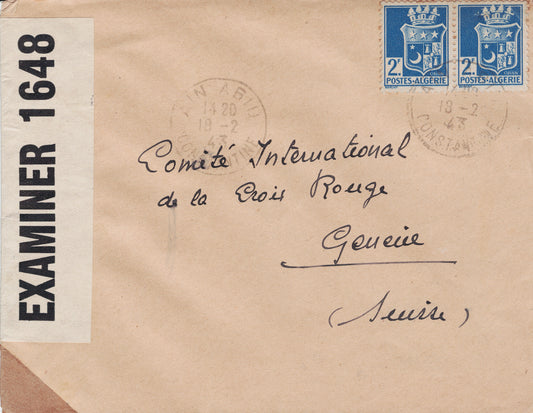 EXAMINER 1648
2F
POSTES-ALGÉRIE
2F
POSTES-ALGÉRIE
AIN ABID
14 20
18 -2
43
CONSTANTINE
18 -2
43
CONSTANTINE
Comité International
de la Croix Rouge
Genève
(Suisse)